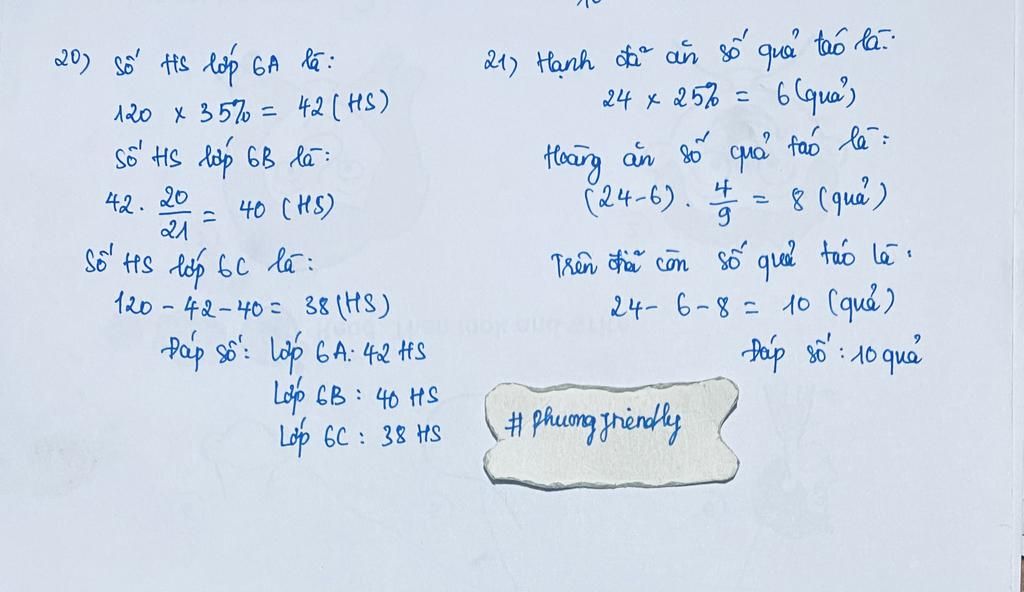 20) Số HS lớp 6A là:
120 x 35% = 42 (HS)
Số HS lớp 6B là:
42. 20/21 = 40 (HS)
Số HS lớp 6C là:
120 - 42 - 40 = 38 (HS)
Đáp số: Lớp 6A: 42 HS
Lớp 6B: 40 HS
Lớp 6C: 38 HS
21) Hạnh đã ăn số quả táo là:
24 x 25% = 6 (quả)
Hoàng ăn số quả táo là:
(24-6) . 4/9 = 8 (quả)
Trên đĩa còn số quả táo là:
24 - 6 - 8 = 10 (quả)
Đáp số: 10 quả
# phuongfriendly